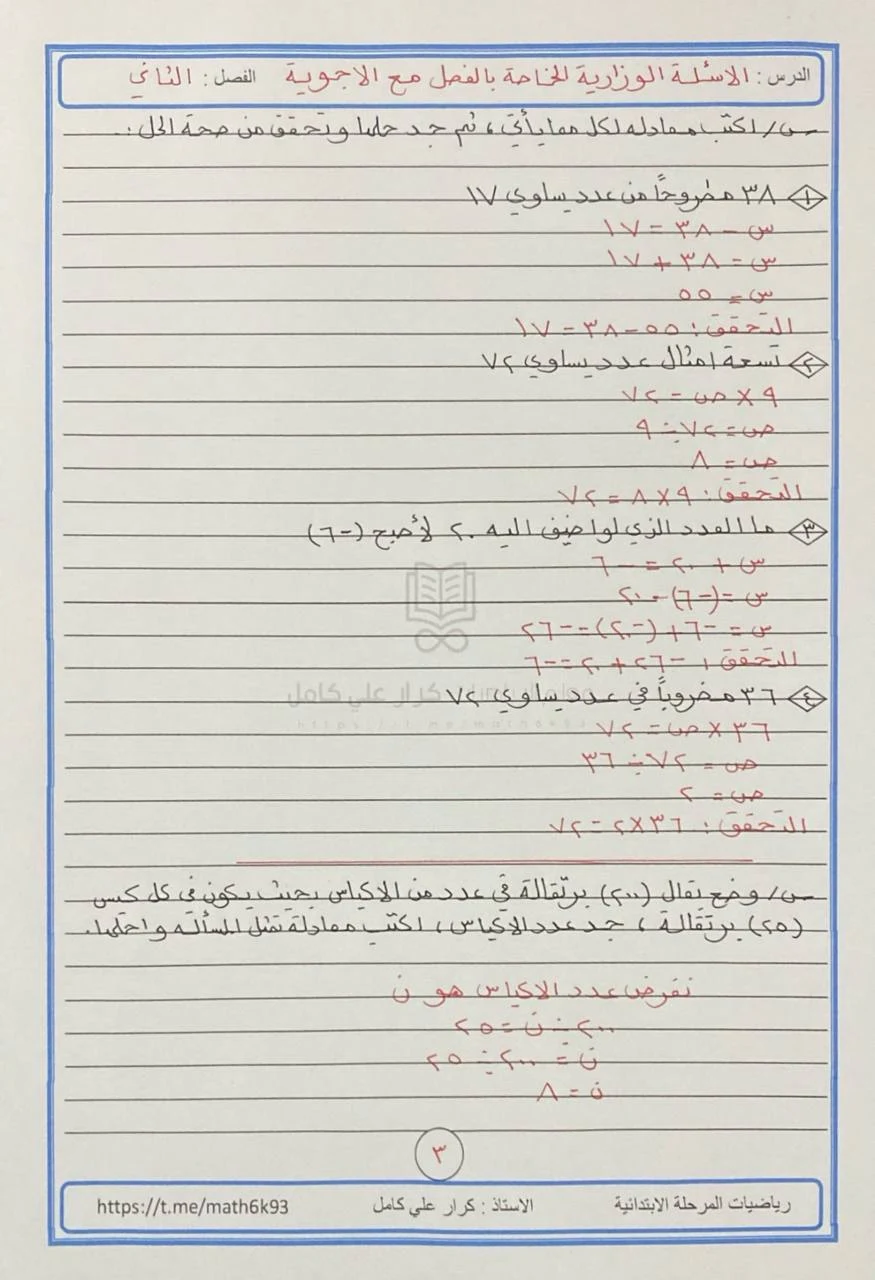 الدرس : الاسئلة الوزارية الخاصة بالفصل مع الاجوبة الفصل : الثاني
س/ اكتب معادله لكل مما يأتي ، ثم جد حلها وتحقق من صحة الحل :.
١ ٣٨ مطروحاً من عدد يساوي ١٧
س - ٣٨ = ١٧
س = ٣٨ + ١٧
س = ٥٥
التحقق : ٥٥ - ٣٨ = ١٧
٢ تسعة امثال عدد يساوي ٧٢
٩ × ص = ٧٢
ص = ٧٢ ÷ ٩
ص = ٨
التحقق : ٩ × ٨ = ٧٢
٣ ما العدد الذي لو اضيف اليه ٢٠ لأصبح (-٦)
س + ٢٠ = -٦
س = (-٦) - ٢٠
س = -٦ + (-٢٠) = -٢٦
التحقق : -٢٦ + ٢٠ = -٦
٤ ٣٦ مضروباً في عدد يساوي ٧٢
كرار علي كامل
٣٦ × ص = ٧٢
ص = ٧٢ ÷ ٣٦
ص = ٢
التحقق : ٣٦ × ٢ = ٧٢
س/ وضع بقال (٢٠٠) برتقالة في عدد من الاكياس بحيث يكون في كل كيس
(٢٥) برتقالة ، جد عدد الاكياس ، اكتب معادلة تمثل المسألة واحلها.
نفرض عدد الاكياس هو ن
٢٠٠ ÷ ن = ٢٥
ن = ٢٠٠ ÷ ٢٥
ن = ٨
٣
رياضيات المرحلة الابتدائية الاستاذ : كرار علي كامل https://t.me/math6k93